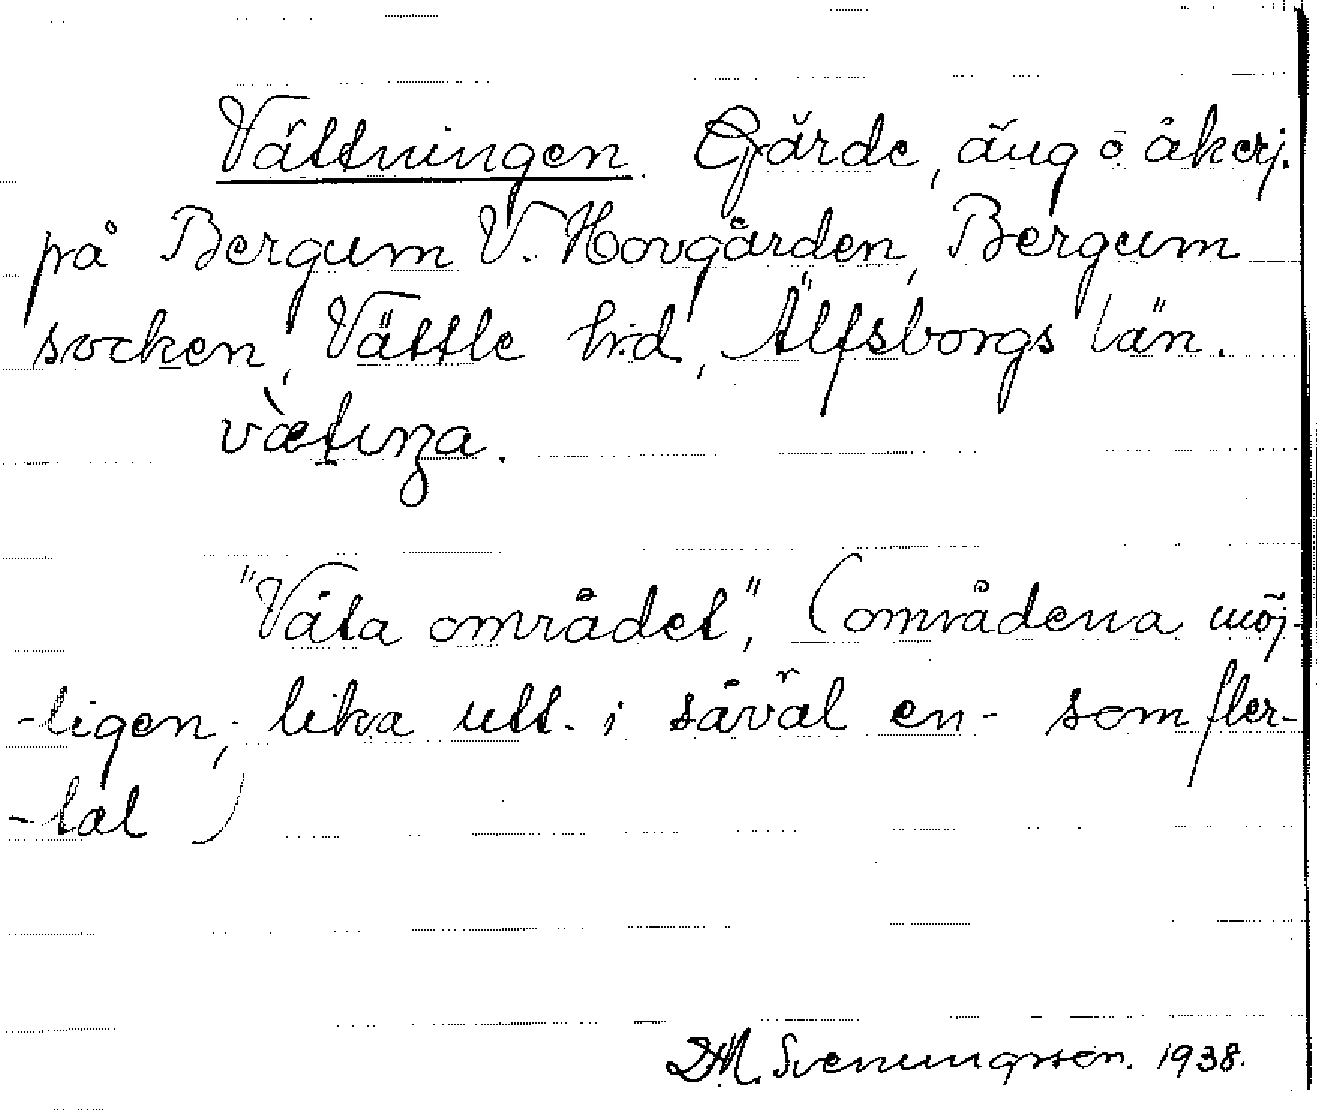 Vättningen. Gärde, äng o åkerj.
på Bergum V. Hovgården, Bergum
socken, Vättle hrd, Älfsborgs län.
vætıŋa.
"Våta området", (områdena möj-
-ligen, lika utt. i såväl en- som fler-
-tal)
D.M. Svenungsson. 1938.